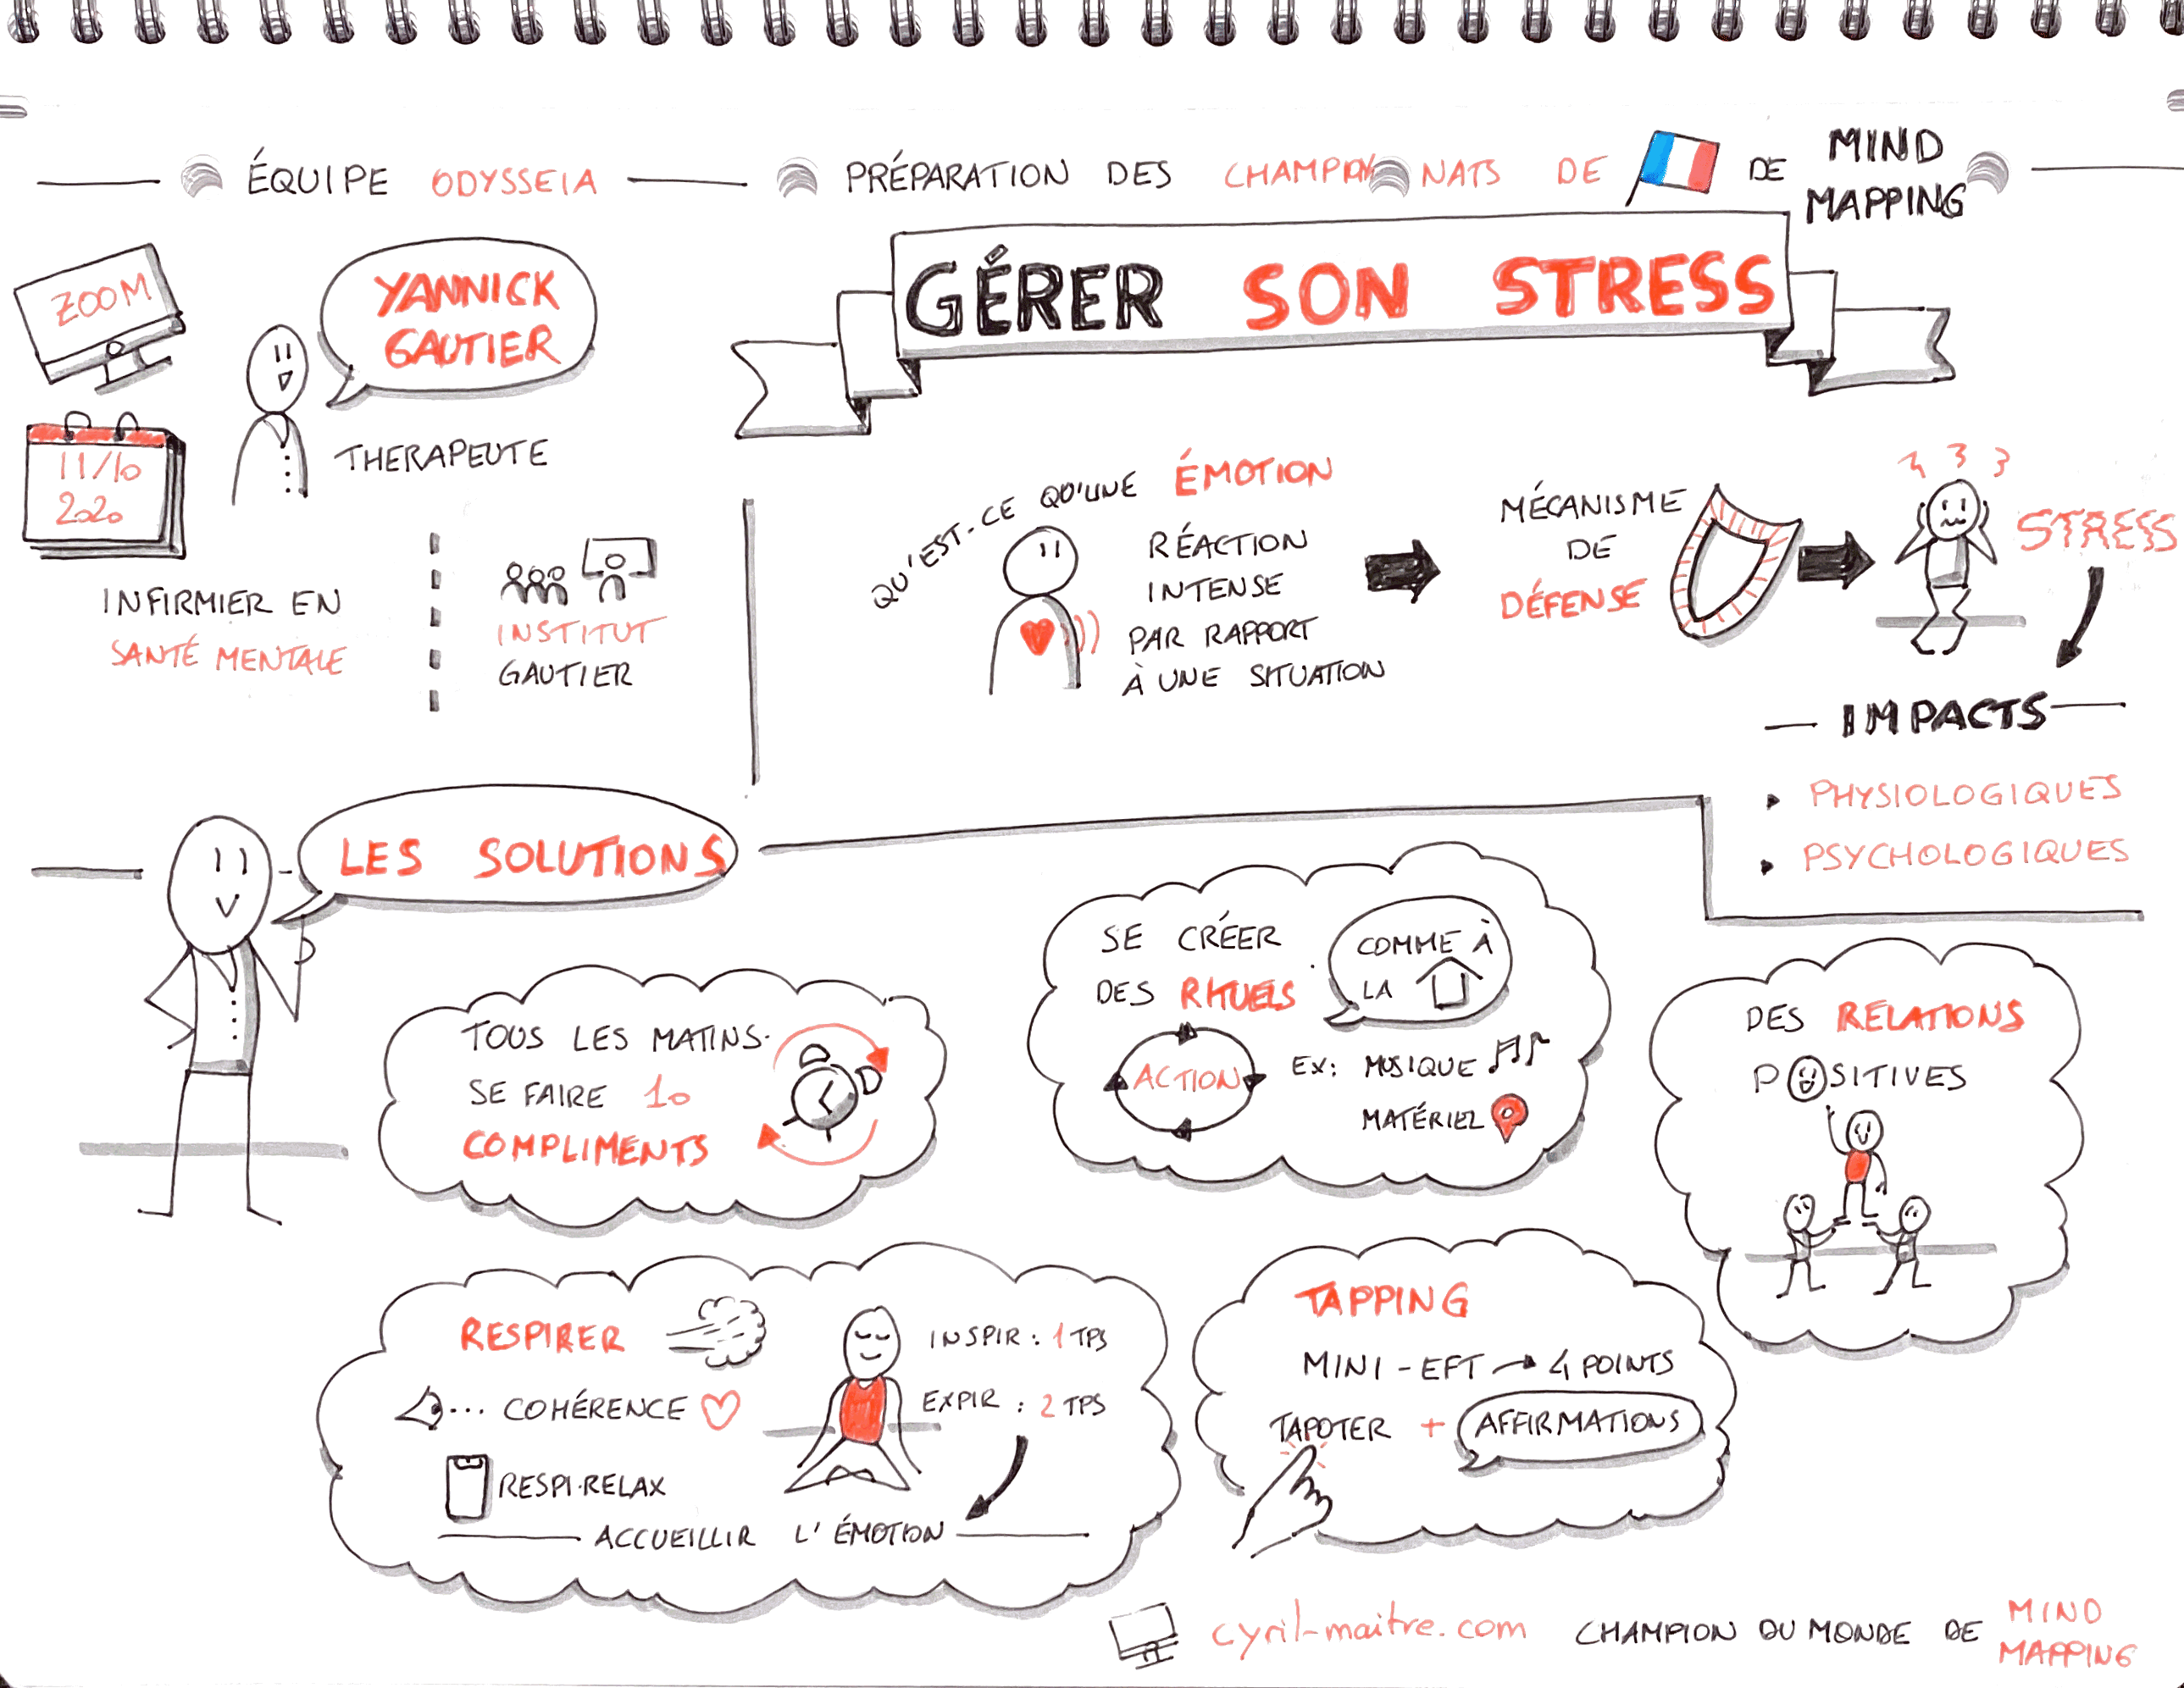 ÉQUIPE ODYSSEIA
PRÉPARATION DES CHAMPIONNATS DE DE MIND
MAPPING
ZOOM
YANNICK
GAUTIER
THERAPEUTE
11/10
2020
INFIRMIER EN
SANTÉ MENTALE
INSTITUT
GAUTIER
GÉRER SON STRESS
QU'EST-CE QU'UNE ÉMOTION
RÉACTION
INTENSE
PAR RAPPORT
À UNE SITUATION
MÉCANISME
DE
DÉFENSE
STRESS
IMPACTS
PHYSIOLOGIQUES
PSYCHOLOGIQUES
LES SOLUTIONS
TOUS LES MATINS
SE FAIRE 10
COMPLIMENTS
SE CRÉER
DES RITUELS
COMME À
LA
ACTION
EX: MUSIQUE
MATÉRIEL
DES RELATIONS
POSITIVES
RESPIRER
COHÉRENCE
RESPI.RELAX
INSPIR : 1 TPS
EXPIR : 2 TPS
ACCUEILLIR L'ÉMOTION
TAPPING
MINI-EFT → 4 POINTS
TAPOTER + AFFIRMATIONS
cyril-maitre.com CHAMPION DU MONDE DE MIND
MAPPING